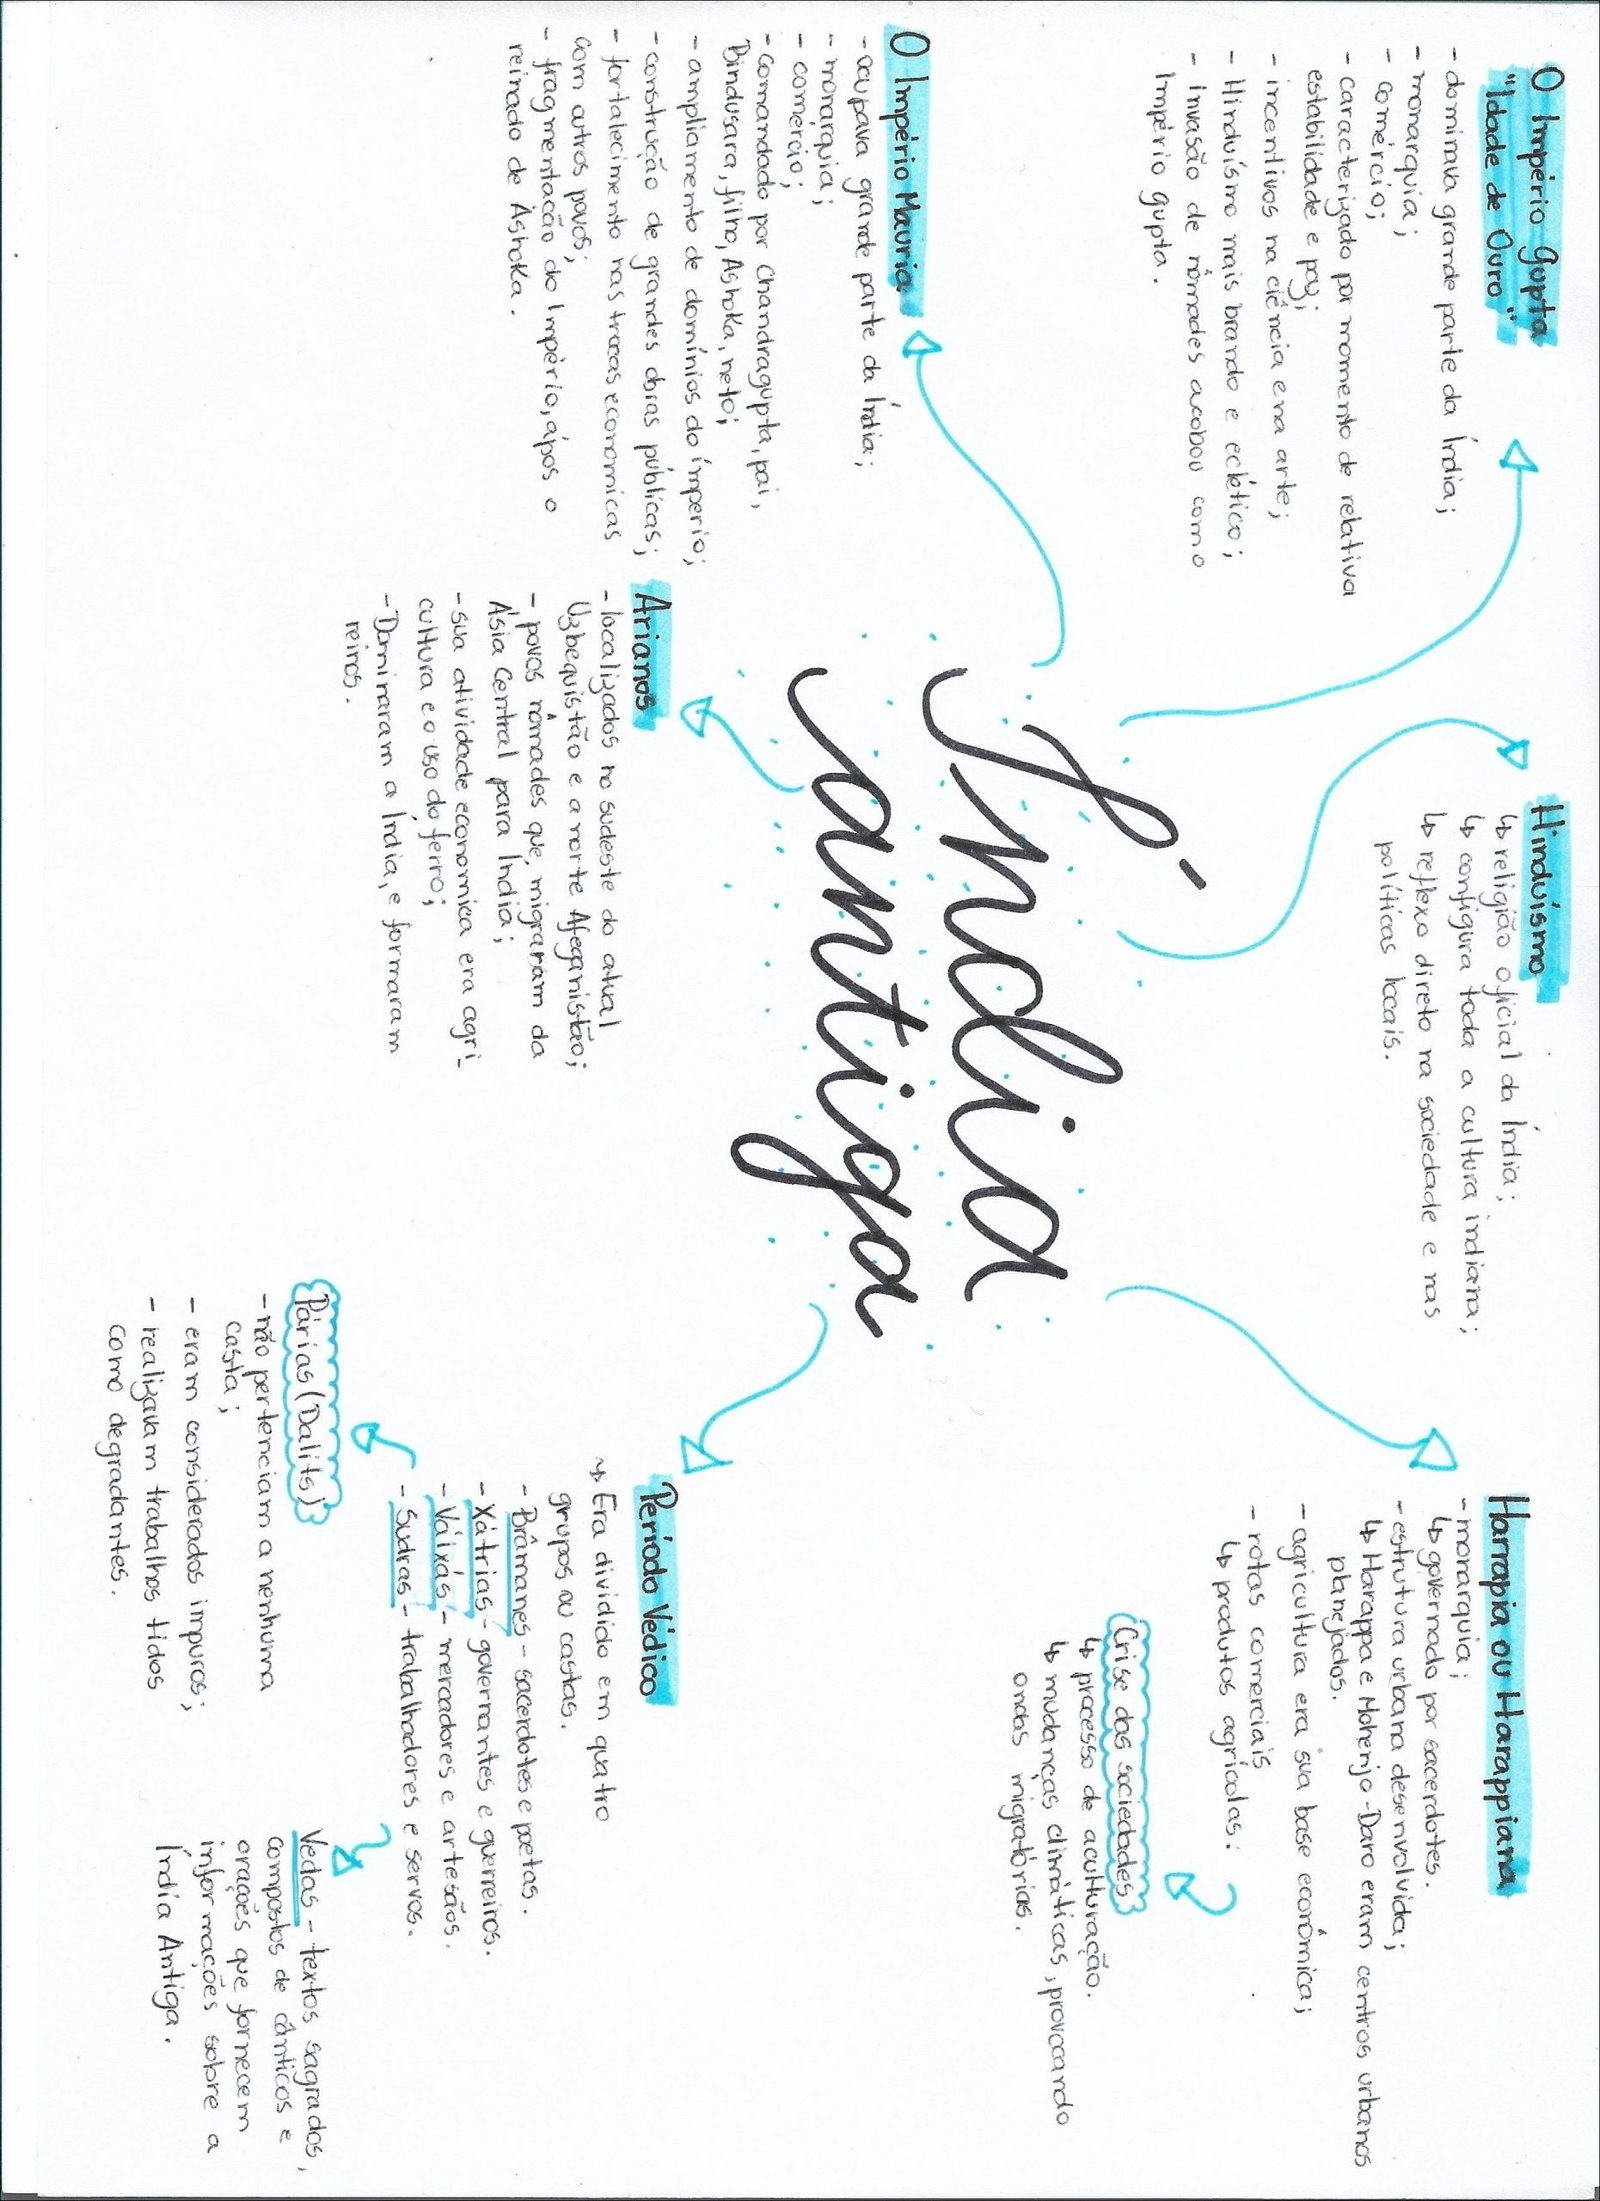 Índia
antiga
O Império Gupta
"Idade de Ouro"
- dominava grande parte da Índia;
- monarquia;
- comércio;
- caracterizado por momento de relativa
estabilidade e paz;
- incentivos na ciência e na arte;
- Hinduísmo mais brando e eclético;
- Invasão de nômades acabou como
Império Gupta.
Hinduísmo
↳ religião oficial da Índia;
↳ configura toda a cultura indiana;
↳ reflexo direto na sociedade e nas
políticas locais.
Harrapia ou Harappiana
- monarquia;
↳ governado por sacerdotes.
- estrutura urbana desenvolvida;
↳ Harappa e Mohenjo-Daro eram centros urbanos
planejados.
- agricultura era sua base econômica;
- rotas comerciais
↳ produtos agrícolas;
Crise das sociedades
↳ processo de aculturação.
↳ mudanças climáticas, provocando
ondas migratórias.
O Império Mauria
- ocupava grande parte da Índia;
- monarquia;
- comércio;
- Comandado por Chandragupta, pai,
Bindusara, filho, Ashoka, neto;
- ampliamento de domínios do ímperio;
- construção de grandes obras públicas;
- fortalecimento nas trocas economicas
com outros povos;
- fragmentação do Império, ápos o
reinado de Ashoka.
Arianos
- localizados no sudeste do atual
Uzbequistão e a norte Afeganistão;
- povos nômades que, migraram da
Ásia Central para Índia;
- sua atividade economica era agri-
cultura e o uso do ferro;
- Dominaram a Índia, e formaram
reinos.
Período Védico
↳ Era dividido em quatro
grupos ou castas.
- Brâmanes - sacerdotes e poetas.
- Xátrias - governantes e guerreiros.
- Váixás - mercadores e artesãos.
- Sudras - trabalhadores e servos.
Párias (Dalits)
- não pertenciam a nenhuma
casta;
- eram considerados impuros;
- realizavam trabalhos tidos
como degradantes.
Vedas - textos sagrados,
compostos de cânticos e
orações que fornecem
informações sobre a
Índia Antiga.